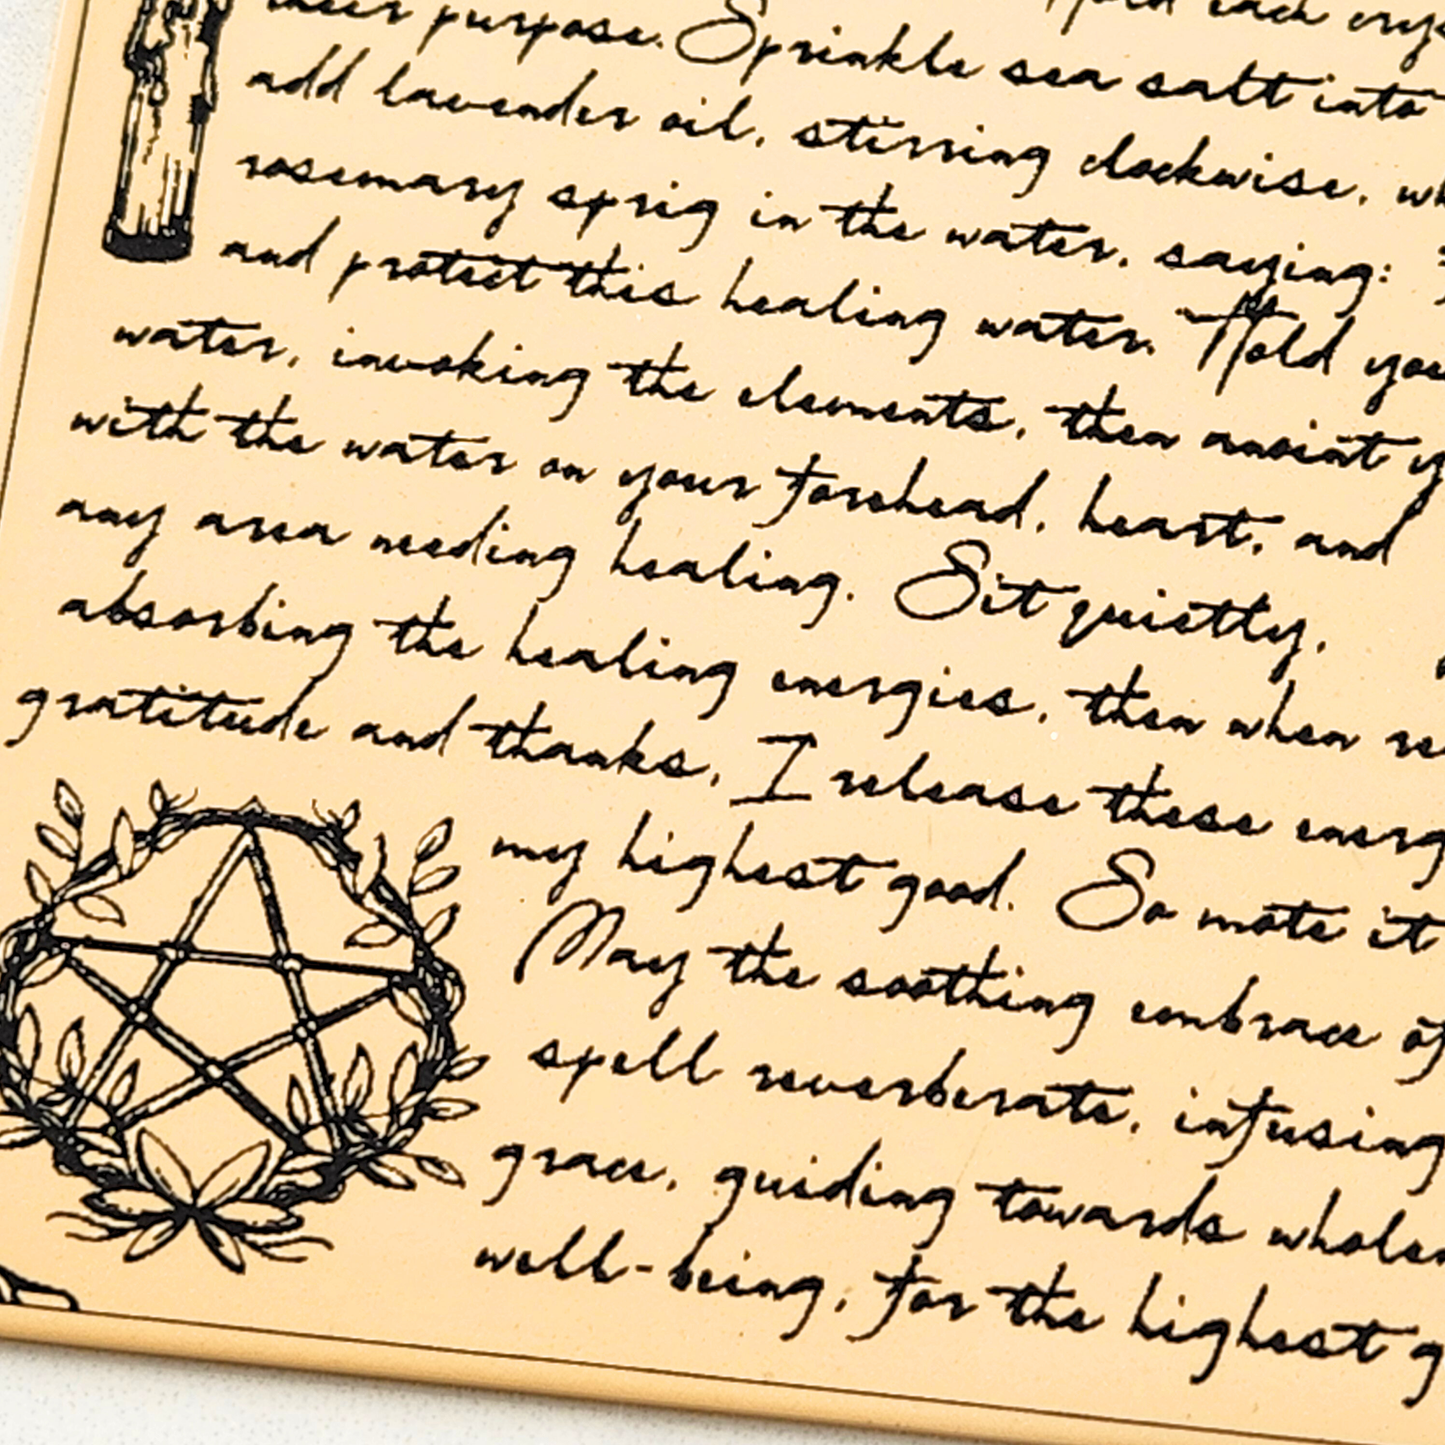 purpose. Sprinkle sea salt into
add lavender oil, stirring clockwise,
rosemary sprig in the water, saying:
and protect this healing water. Hold
water, invoking the elements, then anoint
with the water on your forehead, heart, and
any area needing healing. Sit quietly,
absorbing the healing energies, then when
gratitude and thanks, I release these
my highest good. So mote it
May the soothing embrace of
spell reverberate, infusing
grace, guiding towards
well-being, for the highest